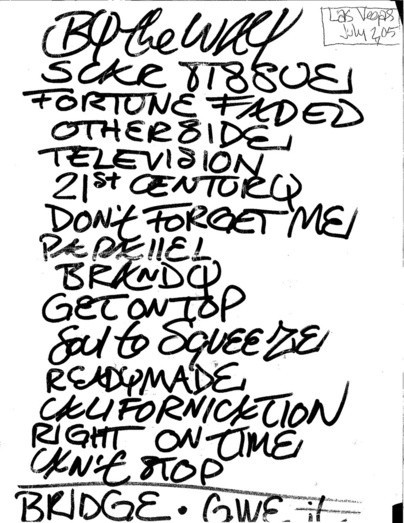 Las Vegas
July 2, 05
By the WAY
SCAR TISSUE
FORTUNE FADED
OTHERSIDE
TELEVISION
21st CENTURY
DON't FORGET ME
PARAllEL
BRANDY
GET ON TOP
Soul to SQUEEZE
READYMADE
CALIFORNICATION
RIGHT ON TIME
CAN't STOP
BRIDGE • GIVE it